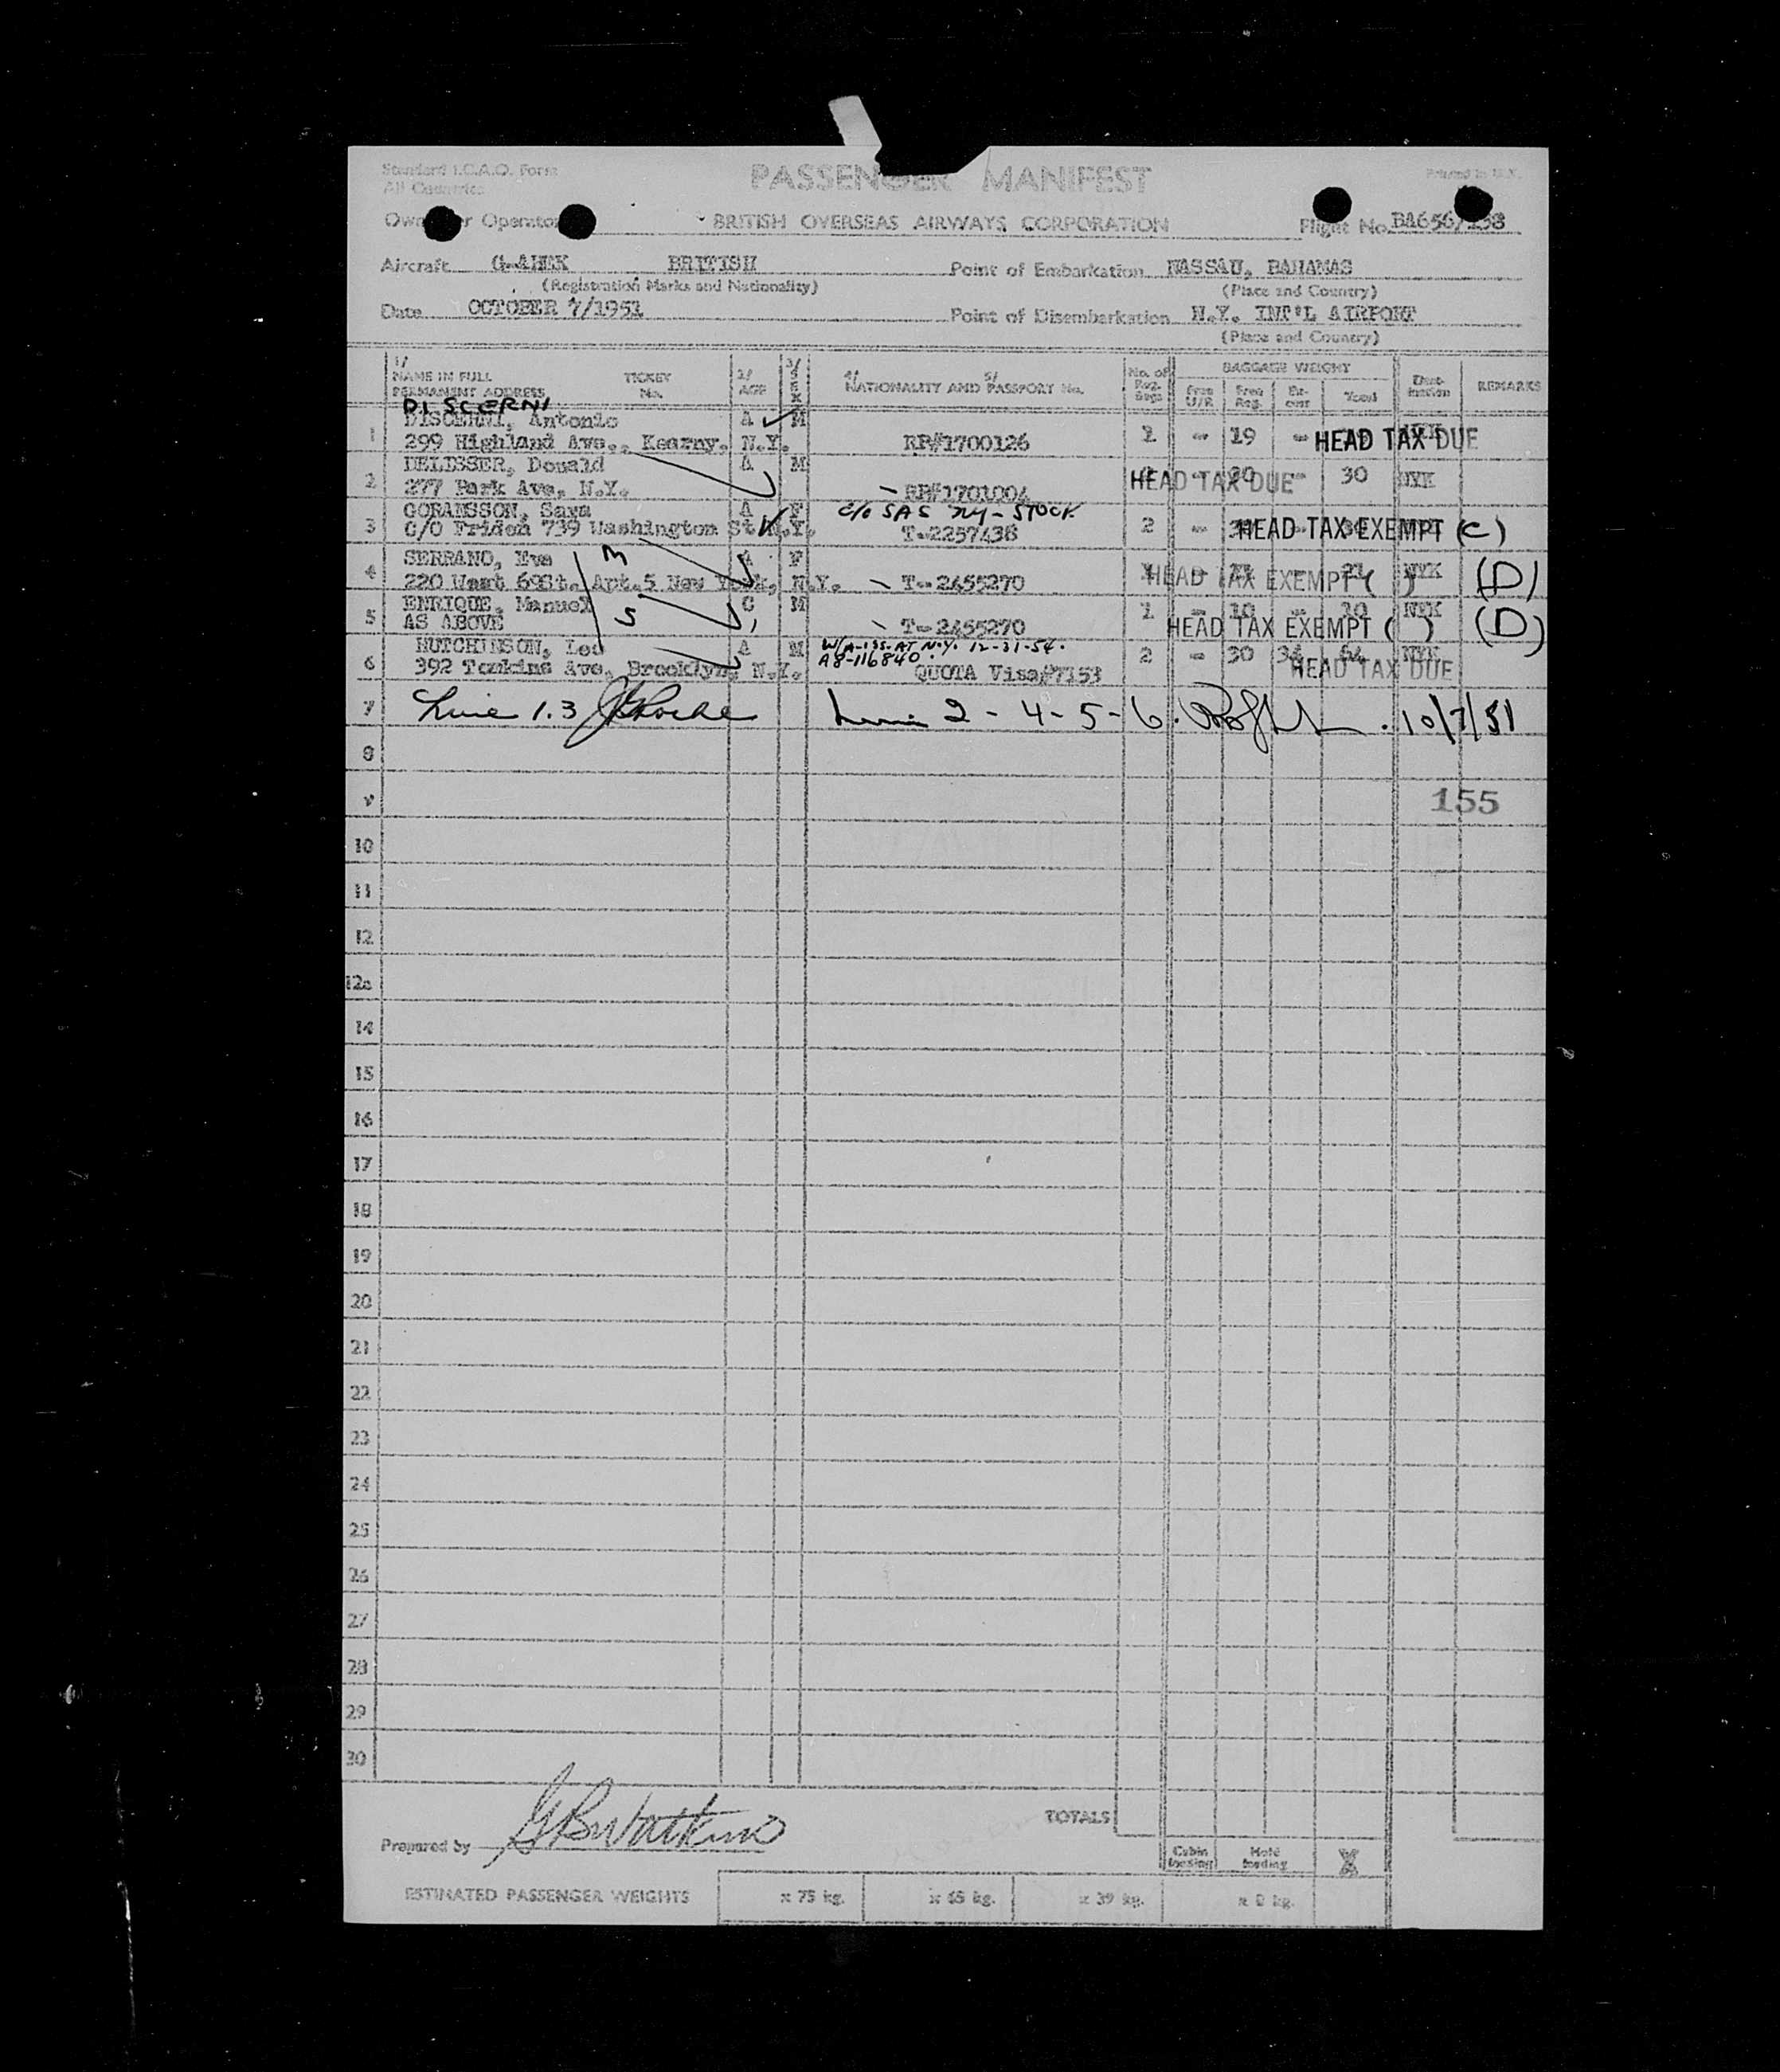 Standard I.C.A.O. Form
All Countries
PASSENGER MANIFEST
Printed in U.K.
Owner or Operator BRITISH OVERSEAS AIRWAYS CORPORATION Flight No. BA656/138
Aircraft BRITISH Point of Embarkation NASSAU, BAHAMAS
(Registration Marks and Nationality) (Place and Country)
Date OCTOBER 7/1951 Point of Disembarkation N.Y. INT'L AIRPORT
(Place and Country)
1/ NAME IN FULL TICKET No. 2/ AGE 3/ SEX 4/ 5/ NATIONALITY AND PASSPORT No. No. of BAGGAGE WEIGHT REMARKS
PERMANENT ADDRESS Free U/R Free Reg. Total Destination
DI SCERNI
DISCERNI, Antonio A M
1 299 Highland Ave., Kearny. N.Y. RP#1700126 1 - 19 - HEAD TAX DUE
DELISSER, Donald A M
2 277 Park Ave, N.Y. RP#1701004 HEAD TAX DUE 30 NYK
GORANSSON, Sara A F c/o SAS NY - STOCK
3 C/O Friden 739 Washington St N.Y. T-2257438 2 - HEAD TAX EXEMPT (C)
SERRANO, Eva M A F
4 220 West 69St. Apt.5 New York, N.Y. T-2455270 HEAD TAX EXEMPT ( ) NYK (D)
ENRIQUE, Manuel S C M
5 AS ABOVE T-2455270 1 - 10 - 10 NYK HEAD TAX EXEMPT ( ) (D)
HUTCHINSON, Leo A M W/A-135-AT N.Y. 12-31-54.
A8-116840
6 392 Tomkins Ave, Brooklyn, N.Y. QUOTA Visa#7153 2 - 30 34 64 NYK HEAD TAX DUE
7 Line 1.3 Line 2-4-5-6. 10/7/51
8
9 155
10
11
12
12a
14
15
16
17
18
19
20
21
22
23
24
25
26
27
28
29
30
TOTALS
Prepared by G B Watkins
Cabin loading Hold loading
ESTIMATED PASSENGER WEIGHTS x 75 kg. x 65 kg. x 39 kg. x 8 kg.